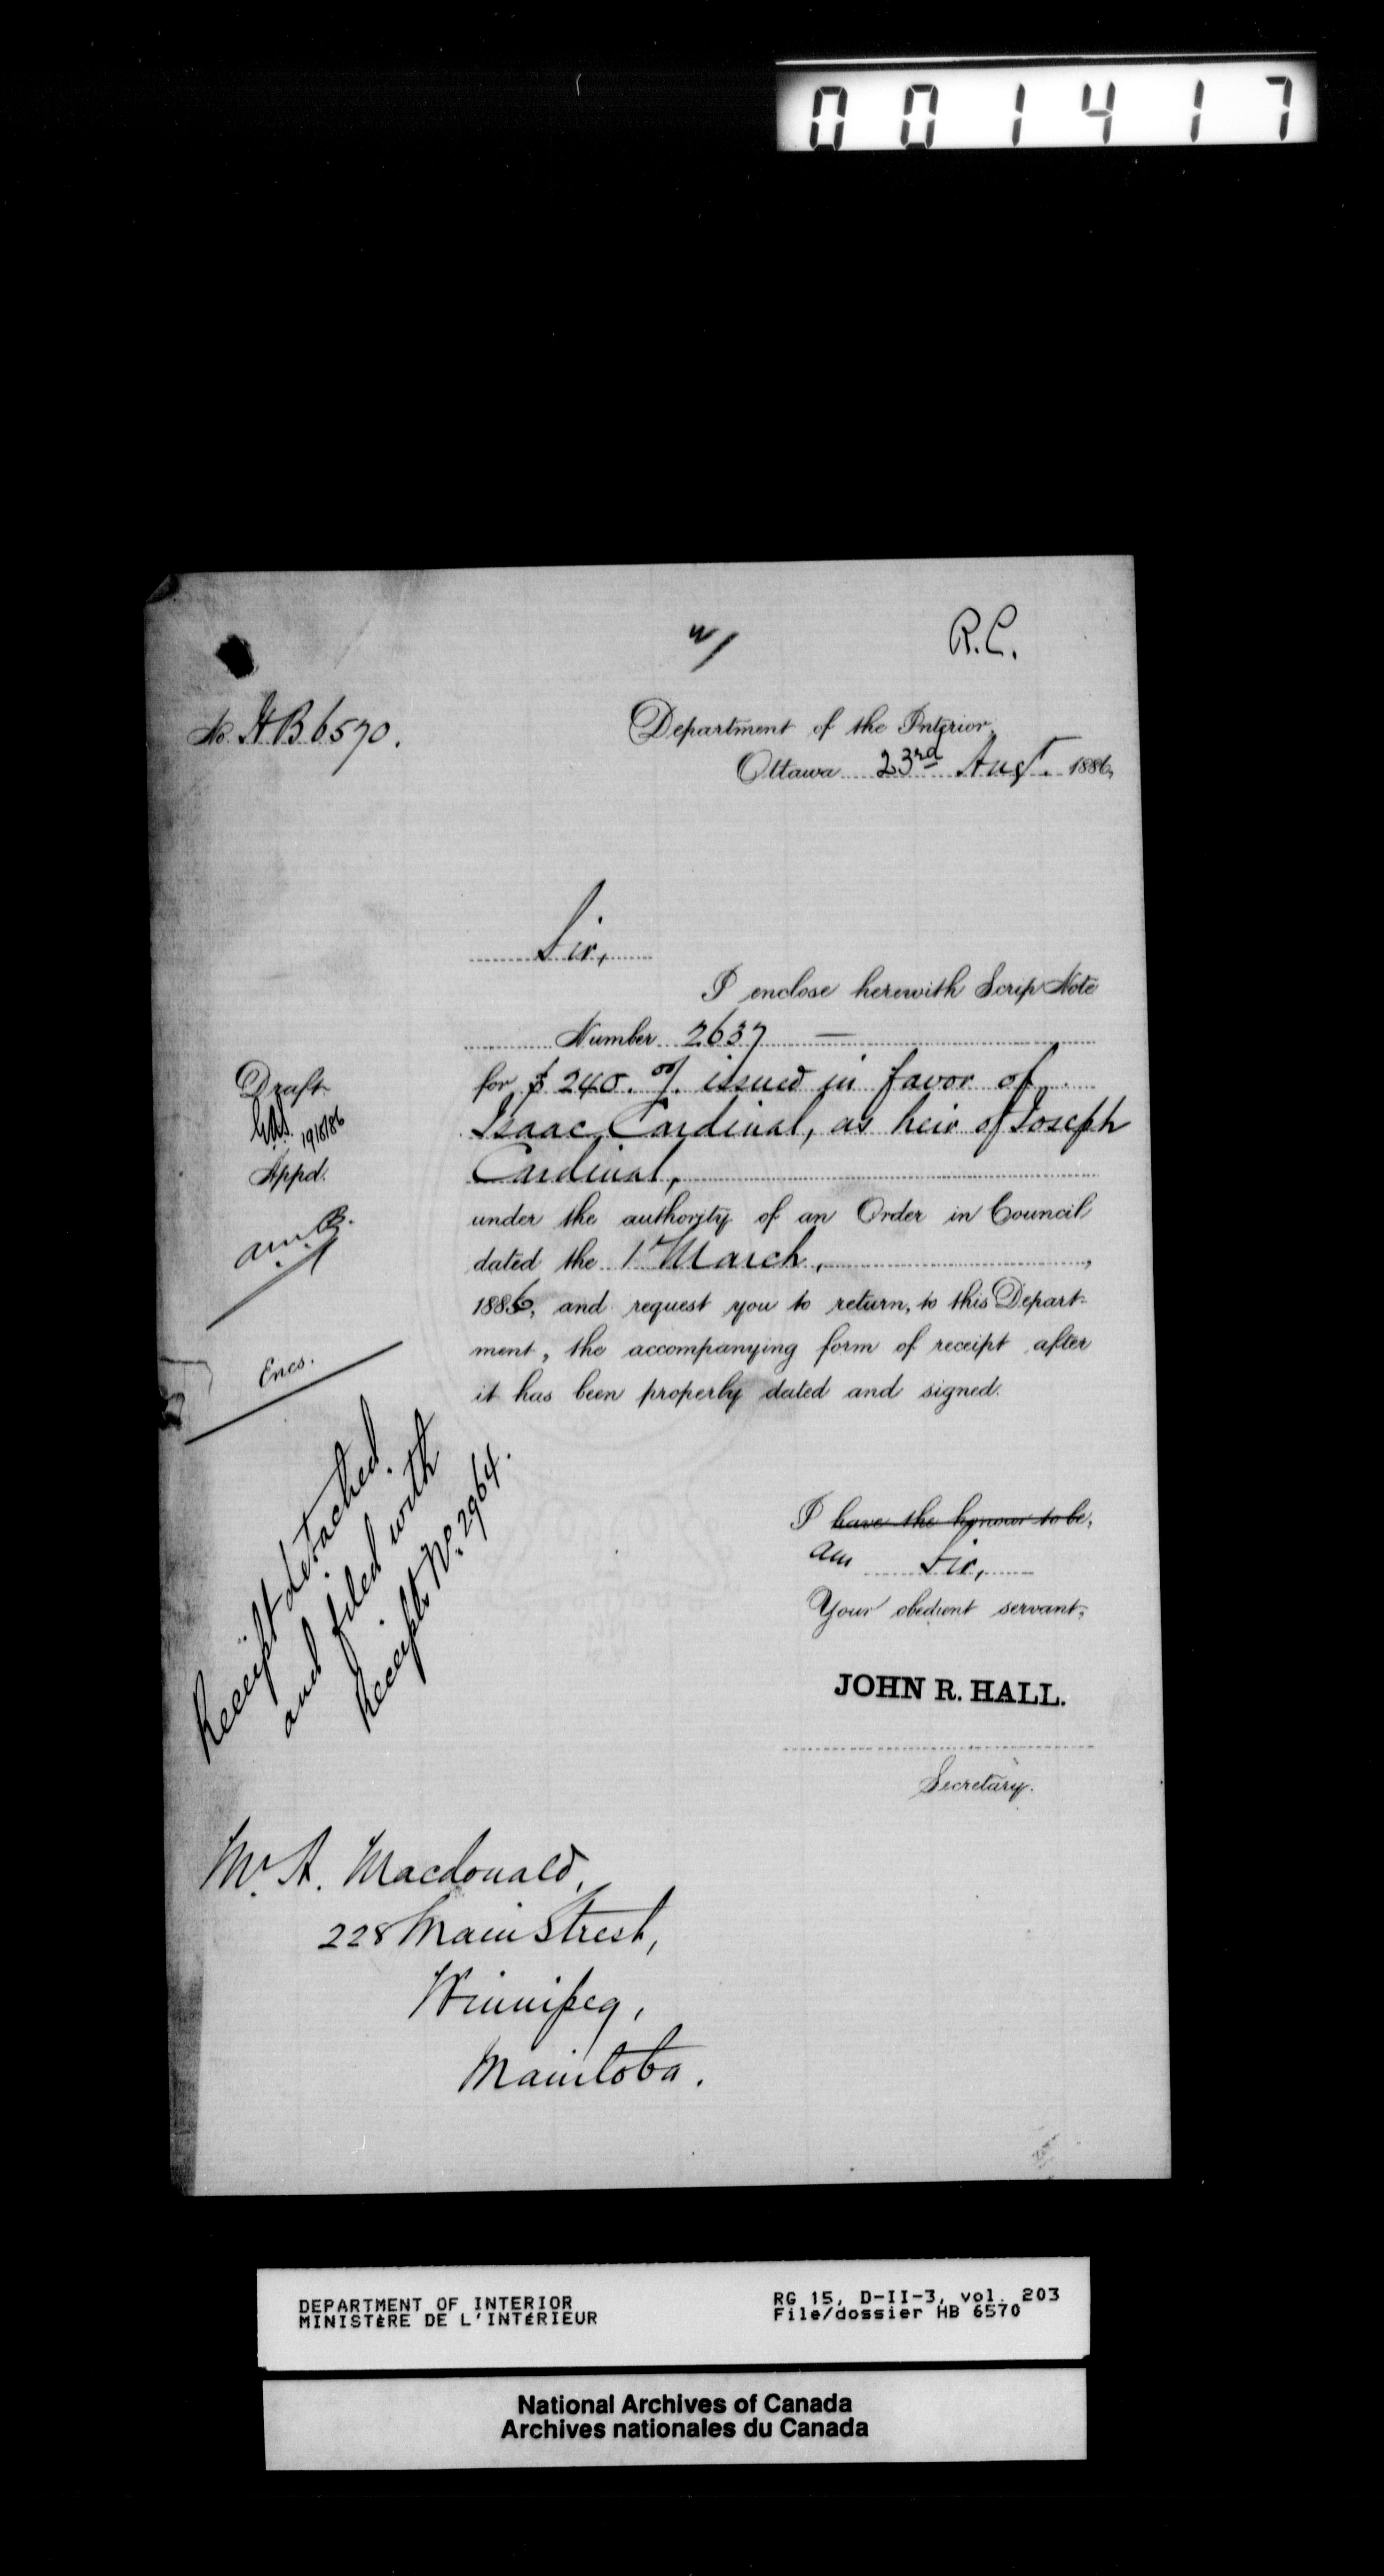 001417
w/
R.C.
No. HB 6570.
Department of the Interior,
Ottawa 23rd Augt. 1886,
Sir,
I enclose herewith Scrip Note
Number 2637 —
for $ 240. 00/. issued in favor of
Isaac Cardinal, as heir of Joseph
Cardinal,
under the authority of an Order in Council
dated the 1st March,
1886, and request you to return, to this Depart-
ment, the accompanying form of receipt after
it has been properly dated and signed.
Draft
19/8/86
Appd.
Encs.
Receipt detached.
and filed with
Receipts No. 2964.
I have the honour to be,
am Sir,
Your obedient servant,
JOHN R. HALL.
Secretary.
Mr. A. Macdonald,
228 Main Street,
Winnipeg,
Manitoba.
DEPARTMENT OF INTERIOR
MINISTÈRE DE L'INTÉRIEUR
RG 15, D-II-3, vol. 203
File/dossier HB 6570
National Archives of Canada
Archives nationales du Canada